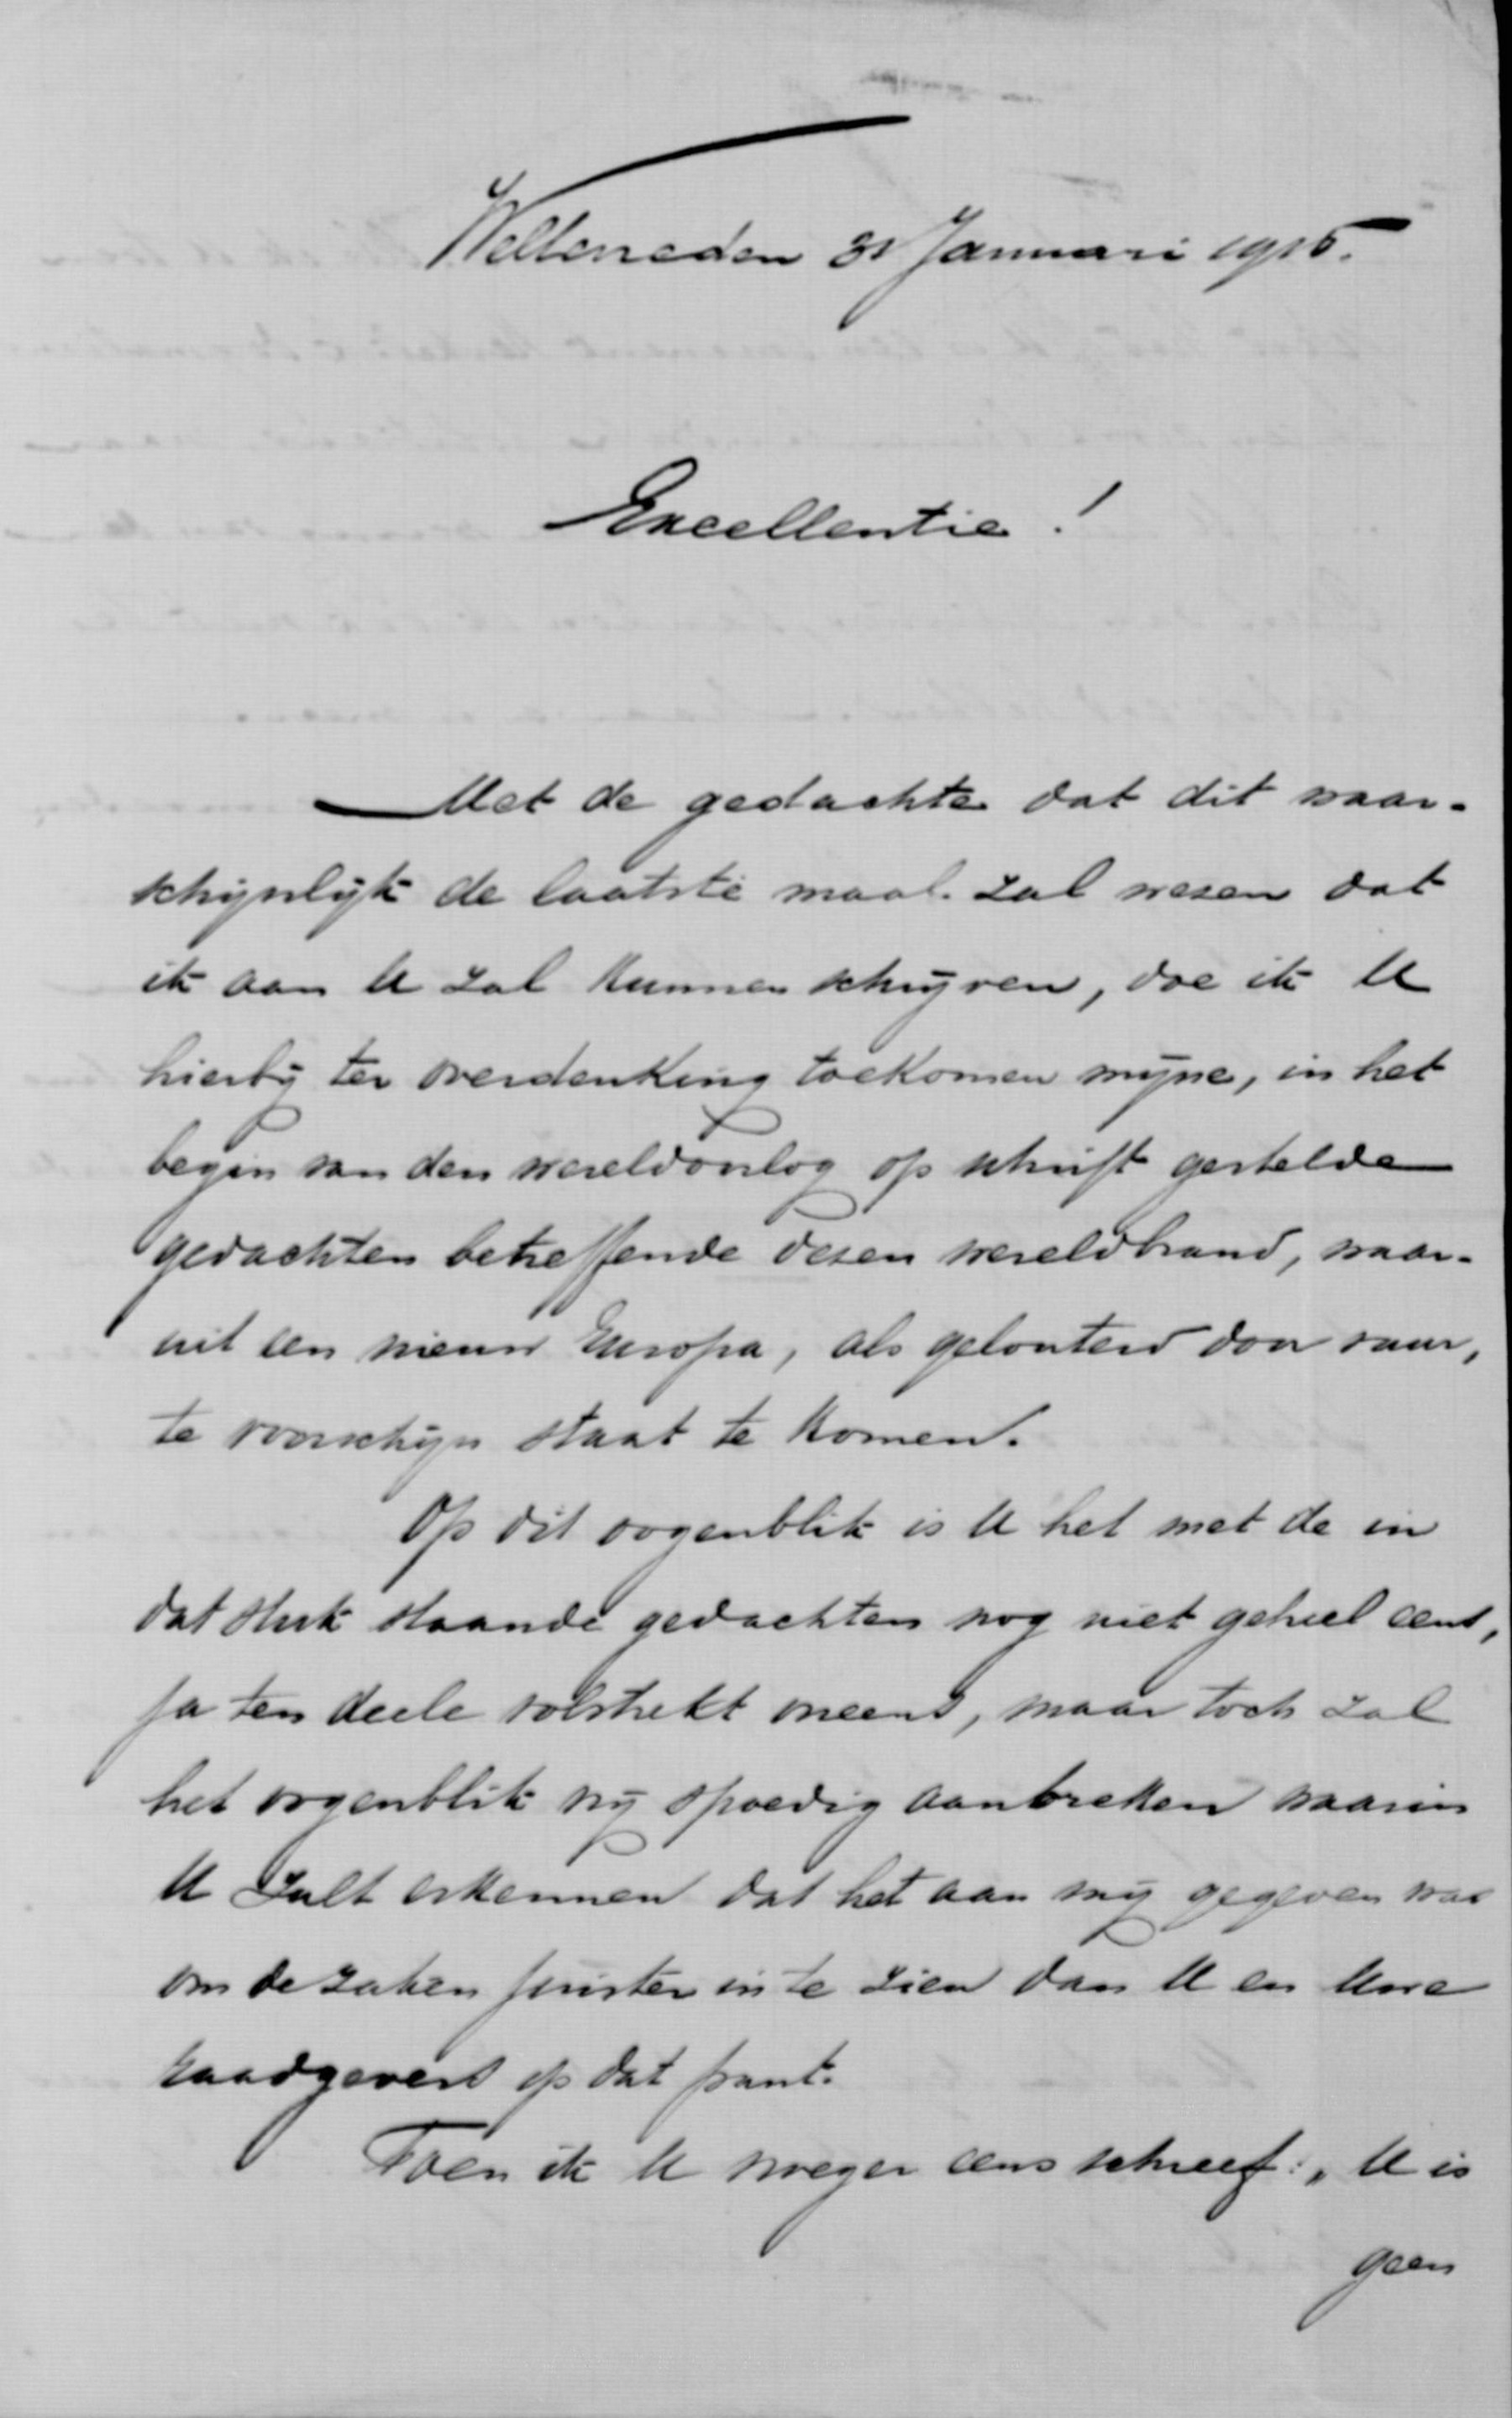 Weltevreden 31 Januari 1915.
Excellentie!
Met de gedachte dat dit waar-
schijnlijk de laatste maal zal wezen dat
ik aan U zal kunnen schrijven, doe ik U
hierbij ter overdenking toekomen mijne, in het
begin van den wereldoorlog op schrift gestelde
gedachten betreffende dezen wereldbrand, waar-
uit een nieuw Europa, als gelouterd door vuur,
te voorschijn staat te komen.
Op dit oogenblik is U het met de in
dat stuk staande gedachten nog niet geheel eens,
ja ten deele volstrekt oneens, maar toch zal
het oogenblik vrij spoedig aanbreken waarin
U zult erkennen dat het aan mij gegeven was
om de zaken juister in te zien dan U en Uwe
raadgevers op dat punt.
Toen ik U vroeger eens schreef: „U is
geen